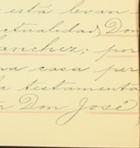 está levan
ctualidad, Don
anchez; por
na casa per
testamenta
Don José